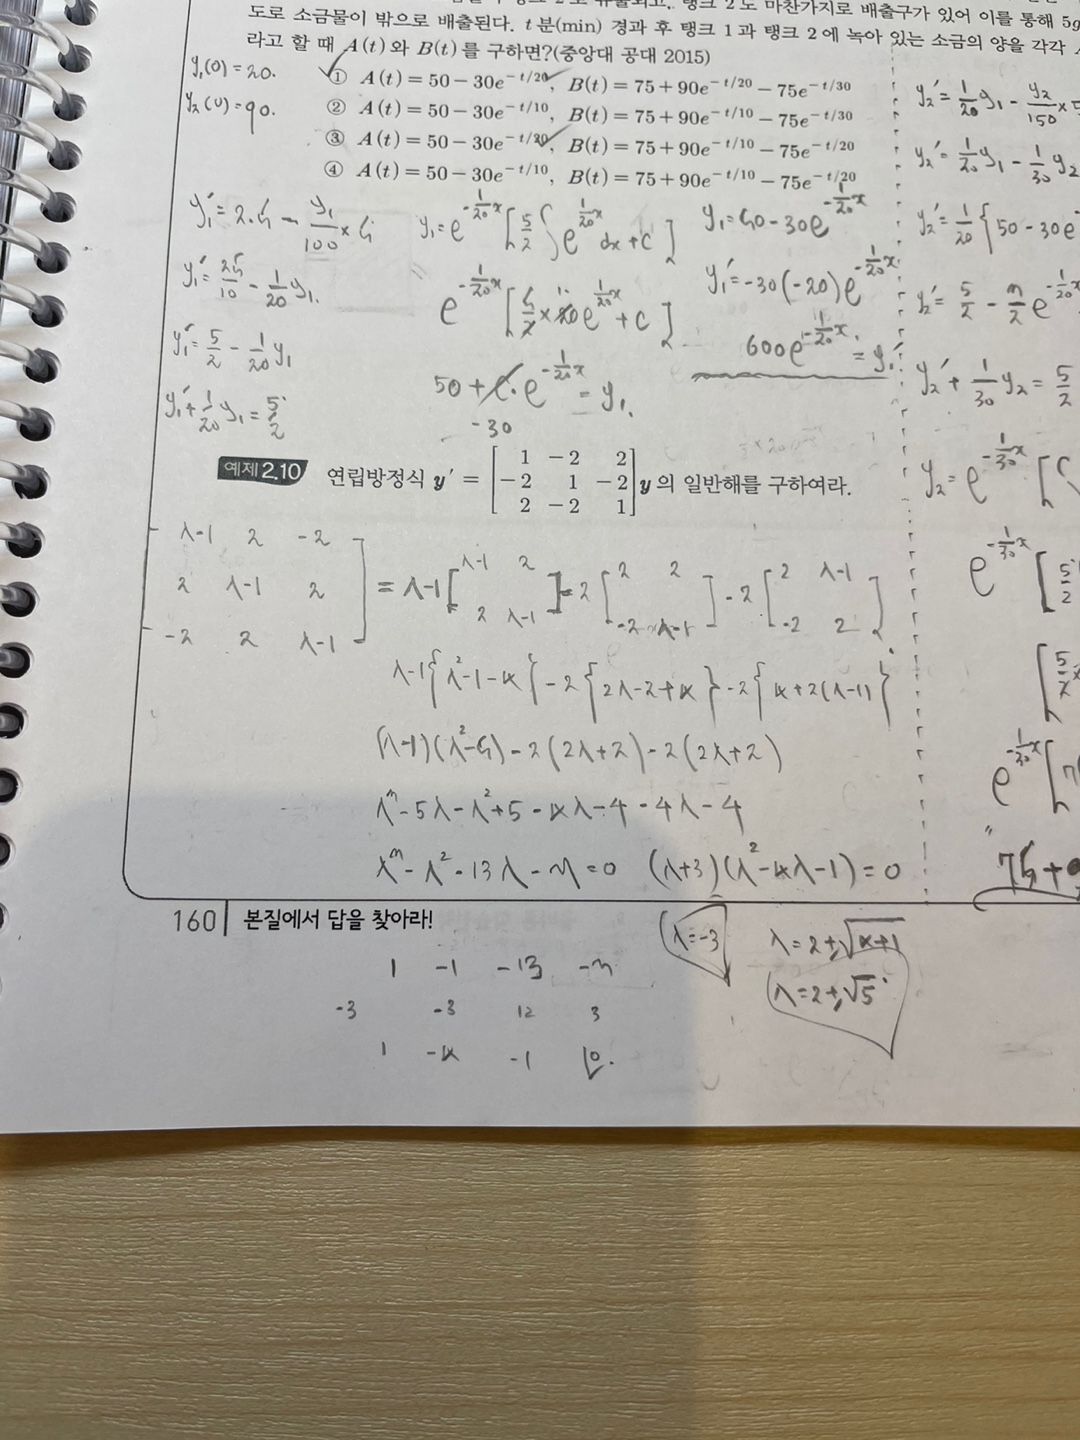 도로 소금물이 밖으로 배출된다. t 분(min) 경과 후 탱크 1과 탱크 2에 녹아 있는 소금의 양을 각각
라고 할 때 A(t)와 B(t)를 구하면?(중앙대 공대 2015)
y₁(0)=20.
y₂(0)=90.
① A(t)=50-30e^{-t/20}, B(t)=75+90e^{-t/20}-75e^{-t/30}
② A(t)=50-30e^{-t/10}, B(t)=75+90e^{-t/10}-75e^{-t/30}
③ A(t)=50-30e^{-t/20}, B(t)=75+90e^{-t/10}-75e^{-t/20}
④ A(t)=50-30e^{-t/10}, B(t)=75+90e^{-t/10}-75e^{-t/20}
y₁'=2.5-y₁/100×5
y₁'=25/10-1/20y₁.
y₁'=5/2-1/20y₁
y₁'+1/20y₁=5/2
y₁=e^{-1/20x}[5/2∫e^{1/20x}dx+c]
e^{-1/20x}[5/2×20e^{1/20x}+c]
50+c·e^{-1/20x}=y₁.
-30
y₁=50-30e^{-1/20x}
y₁'=-30(-20)e^{-1/20x}
600e^{-1/20x}=y₁'
y₂'=1/20y₁-y₂/150×5
y₂'=1/20y₁-1/30y₂
y₂'=1/20{50-30e
y₂'=5/2-3/2e^{-1/20x}
y₂'+1/30y₂=5/2
y₂=e^{-1/30x}[
e^{-1/30x}[5/2
[5/2
e^{-1/30x}[7
75+9
예제2.10 연립방정식 y'=[1 -2 2
-2 1 -2
2 -2 1]y의 일반해를 구하여라.
λ-1 2 -2
2 λ-1 2
-2 2 λ-1
=λ-1[λ-1 2
2 λ-1]-2[2 2
-2 λ-1]-2[2 λ-1
-2 2]
λ-1{λ²-1-4}-2{2λ-2+4}-2{4+2(λ-1)}
(λ-1)(λ²-5)-2(2λ+2)-2(2λ+2)
λ³-5λ-λ²+5-4λ-4-4λ-4
λ³-λ²-13λ-3=0 (λ+3)(λ²-4λ-1)=0
160 본질에서 답을 찾아라!
λ=-3
λ=2±√4+1
λ=2±√5
1 -1 -13 -3
-3 -3 12 3
1 -4 -1 0.